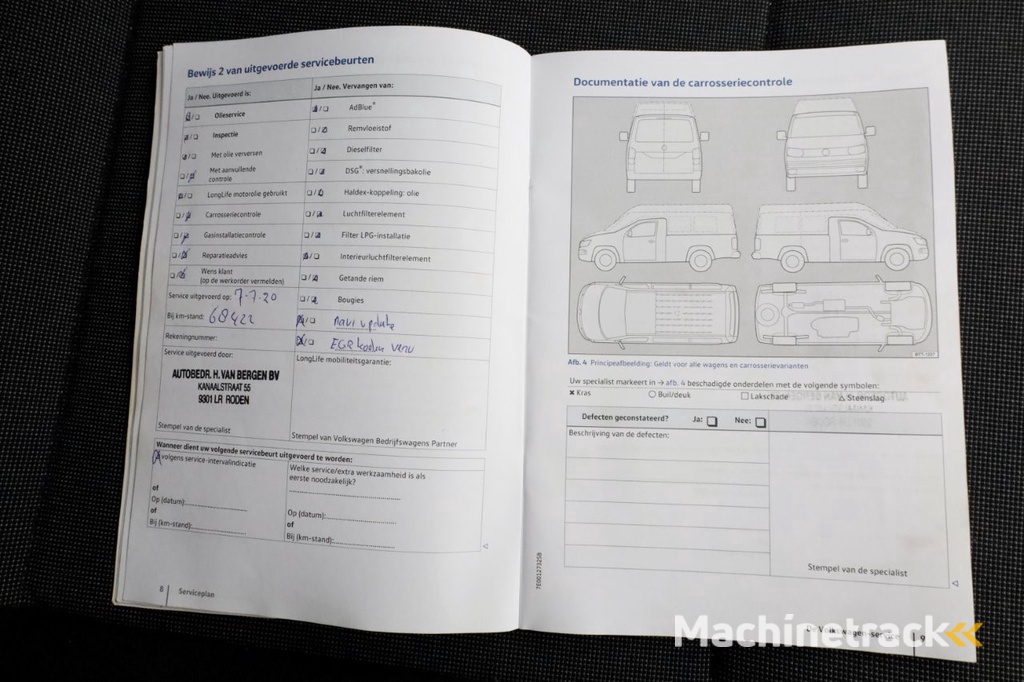 Bewijs 2 van uitgevoerde servicebeurten
Ja / Nee. Uitgevoerd is:
Ja / Nee. Vervangen van:
Olieservice
AdBlue®
Inspectie
Remvloeistof
Met olie verversen
Dieselfilter
Met aanvullende controle
DSG®: versnellingsbakolie
LongLife motorolie gebruikt
Haldex-koppeling: olie
Carrosseriecontrole
Luchtfilterelement
Gasinstallatiecontrole
Filter LPG-installatie
Reparatieadvies
Interieurluchtfilterelement
Wens klant
(op de werkorder vermelden)
Getande riem
Service uitgevoerd op: 7-7-20
Bougies
Bij km-stand: 68422
navi update
Rekeningnummer:
EGR
Service uitgevoerd door:
LongLife mobiliteitsgarantie:
AUTOBEDR. H. VAN BERGEN BV
KANAALSTRAAT 55
9301 LR RODEN
Stempel van de specialist
Stempel van Volkswagen Bedrijfswagens Partner
Wanneer dient uw volgende servicebeurt uitgevoerd te worden:
volgens service-intervalindicatie
Welke service/extra werkzaamheid is als
eerste noodzakelijk?
of
Op (datum):
of
Bij (km-stand):
Op (datum):
of
Bij (km-stand):
8 Serviceplan
Documentatie van de carrosseriecontrole
Afb. 4 Principeafbeelding: Geldt voor alle wagens en carrosserievarianten
Uw specialist markeert in → afb. 4 beschadigde onderdelen met de volgende symbolen:
× Kras
○ Buil/deuk
□ Lakschade
△ Steenslag
Defecten geconstateerd? Ja: Nee:
Beschrijving van de defecten:
Stempel van de specialist
7E0012732SB
De Volkswagen-service 9
Machinetrack